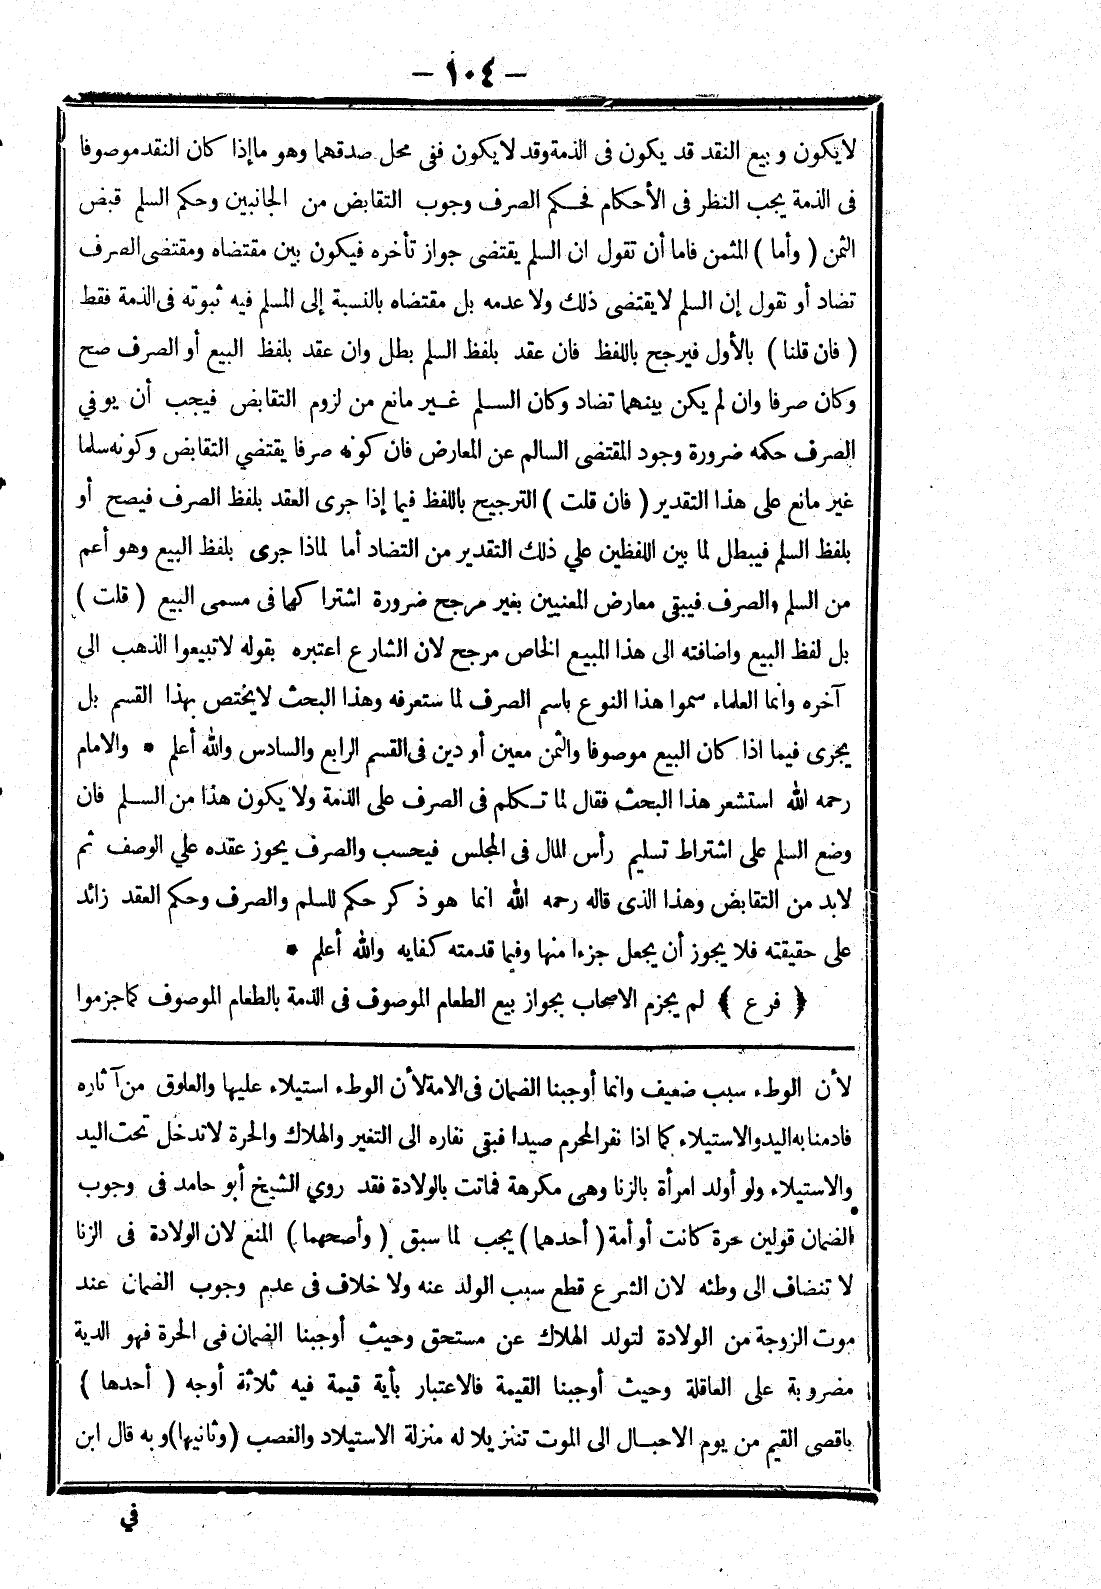 - ١٠٤ -
لايكون وبيع النقد قد يكون فى الذمة وقد لايكون ففى محل صدقهما وهو ماإذا كان النقد موصوفا
فى الذمة يجب النظر فى الأحكام فحكم الصرف وجوب التقابض من الجانبين وحكم السلم قبض
الثمن ( وأما ) المثمن فاما أن تقول ان السلم يقتضى جواز تأخره فيكون بين مقتضاه ومقتضى الصرف
تضاد أو نقول إن السلم لايقتضى ذلك ولا عدمه بل مقتضاه بالنسبة إلى المسلم فيه ثبوته فى الذمة فقط
( فان قلنا ) بالأول فيرجح باللفظ فان عقد بلفظ السلم بطل وان عقد بلفظ البيع أو الصرف صح
وكان صرفا وان لم يكن بينهما تضاد وكان السلم غير مانع من لزوم التقابض فيجب أن يوفي
الصرف حكمه ضرورة وجود المقتضى السالم عن المعارض فان كونه صرفا يقتضي التقابض وكونه سلما
غير مانع على هذا التقدير ( فان قلت ) الترجيح باللفظ فيما إذا جرى العقد بلفظ الصرف فيصح أو
بلفظ السلم فيبطل لما بين اللفظين علي ذلك التقدير من التضاد أما لماذا جرى بلفظ البيع وهو أعم
من السلم والصرف فيبقى معارض المعنيين بغير مرجح ضرورة اشتراكها فى مسمى البيع ( قلت )
بل لفظ البيع واضافته الى هذا المبيع الخاص مرجح لان الشارع اعتبره بقوله لاتبيعوا الذهب الي
آخره وانما العلماء سموا هذا النوع باسم الصرف لما ستعرفه وهذا البحث لايختص بهذا القسم بل
يجرى فيما اذا كان البيع موصوفا والثمن معين أو دين فى القسم الرابع والسادس والله أعلم * والامام
رحمه الله استشعر هذا البحث فقال لما تكلم فى الصرف على الذمة ولا يكون هذا من السلم فان
وضع السلم على اشتراط تسليم رأس المال فى المجلس فيحسب والصرف يجوز عقده علي الوصف ثم
لابد من التقابض وهذا الذى قاله رحمه الله انما هو ذكر حكم للسلم والصرف وحكم العقد زائد
على حقيقته فلا يجوز أن يجعل جزءا منها وفيما قدمته كفايه والله أعلم *
﴿ فرع ﴾ لم يجزم الاصحاب بجواز بيع الطعام الموصوف فى الذمة بالطعام الموصوف كما جزموا
لأن الوطء سبب ضعيف وانما أوجبنا الضمان فى الامة لأن الوطء استيلاء عليها والعلوق من آثاره
فادمنا به اليد والاستيلاء كما اذا نفر المحرم صيدا فبقى نفاره الى التغير والهلاك والحرة لاتدخل تحت اليد
والاستيلاء ولو أولد امرأة بالزنا وهى مكرهة فماتت بالولادة فقد روي الشيخ أبو حامد فى وجوب
الضمان قولين حرة كانت أو أمة ( أحدهما ) يجب لما سبق ( وأصحهما ) المنع لان الولادة فى الزنا
لا تنضاف الى وطئه لان الشرع قطع سبب الولد عنه ولا خلاف فى عدم وجوب الضمان عند
موت الزوجة من الولادة لتولد الهلاك عن مستحق وحيث أوجبنا الضمان فى الحرة فهو الدية
مضروبة على العاقلة وحيث أوجبنا القيمة فالاعتبار بأية قيمة فيه ثلاثة أوجه ( أحدها )
باقصى القيم من يوم الاحبال الى الموت تنزيلا له منزلة الاستيلاد والغصب ( وثانيها ) وبه قال ابن
في